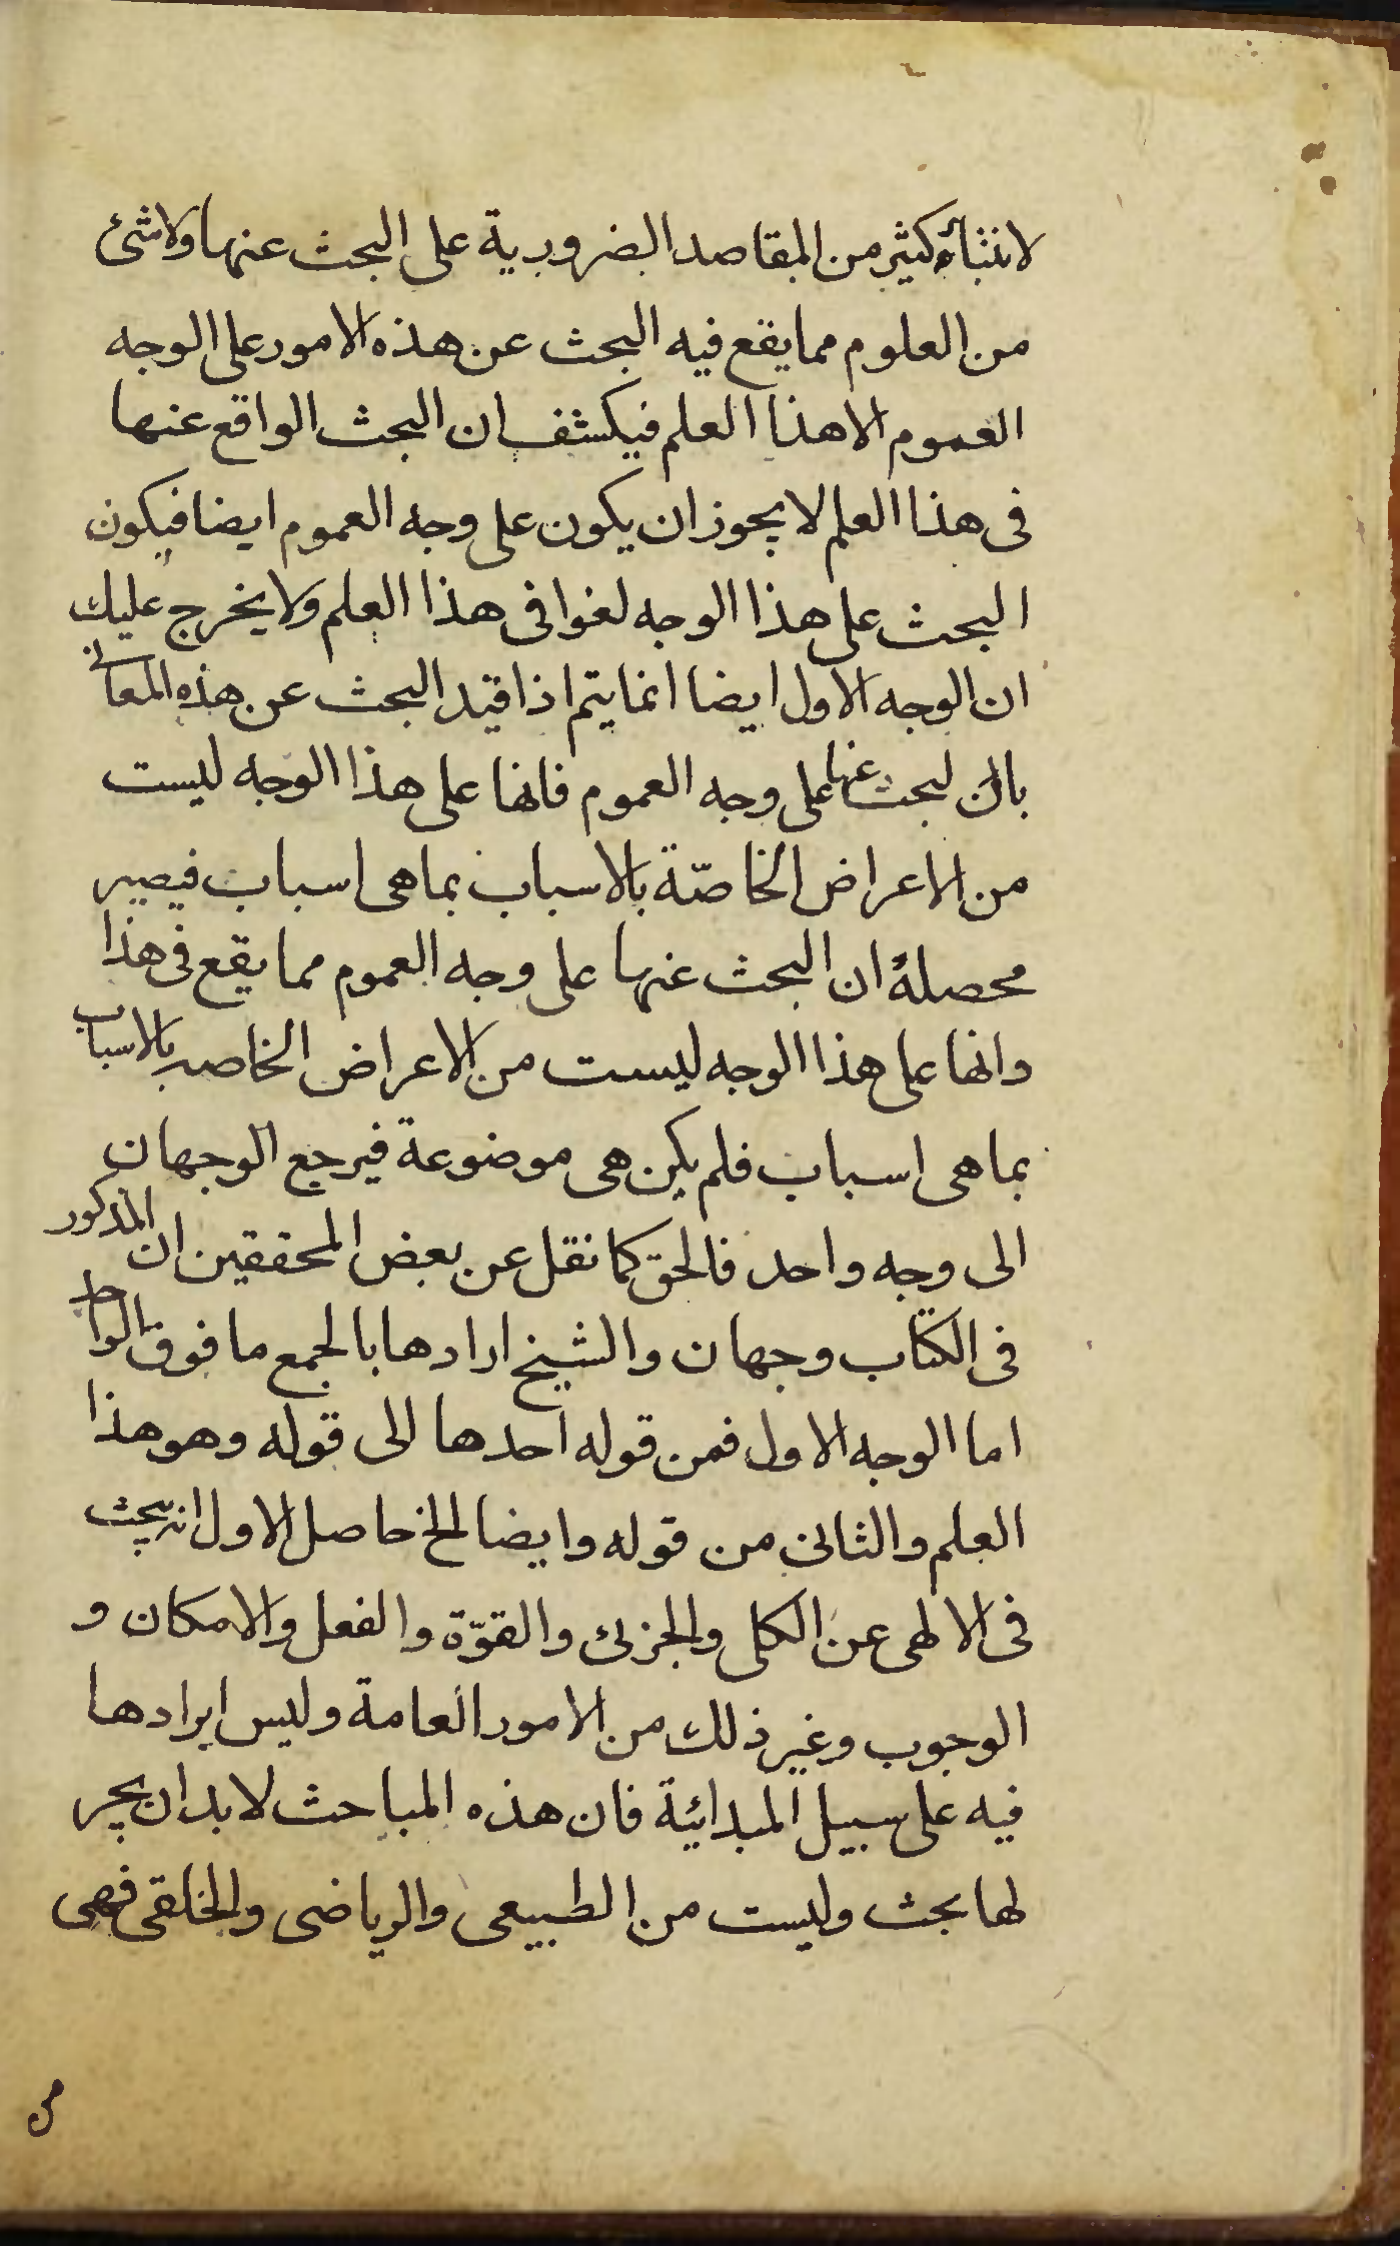 لانثناء كثير من المقاصد الضرورية على البحث عنها ولا شئ
من العلوم مما يقع فيه البحث عن هذه الامور على الوجه
العموم الا هذا العلم فيكشف ان البحث الواقع عنها
فى هذا العلم لا يجوز ان يكون على وجه العموم ايضا فيكون
البحث على هذا الوجه لغوا فى هذا العلم ولا يخرج عليك
ان الوجه الاول ايضا انما يتم اذا قيد البحث عن هذه المعانى
بان لبحث عنها على وجه العموم فانها على هذا الوجه ليست
من الاعراض الخاصّة بالاسباب بما هى اسباب فيصير
محصلهُ ان البحث عنها على وجه العموم مما يقع فى هذا
وانها على هذا الوجه ليست من الاعراض الخاصه بالاسباب
بما هى اسباب فلم يكن هى موضوعة فيرجع الوجهان
الى وجه واحد فالحق كما نقل عن بعض المحققين ان المذكور
فى الكتاب وجهان والشيخ ارادها بالجمع ما فوق الواحد
اما الوجه الاول فمن قوله احدها الى قوله وهو هذا
العلم والثانى من قوله وايضا الخ حاصل الاول انه يبحث
فى الالهى عن الكلى والجزئ والقوّة والفعل والامكان و
الوجوب وغير ذلك من الامور العامة وليس ايرادها
فيه على سبيل المبدائية فان هذه المباحث لا بد ان يجر
لها بحث وليست من الطبيعى والرياضى والخلقى فهى